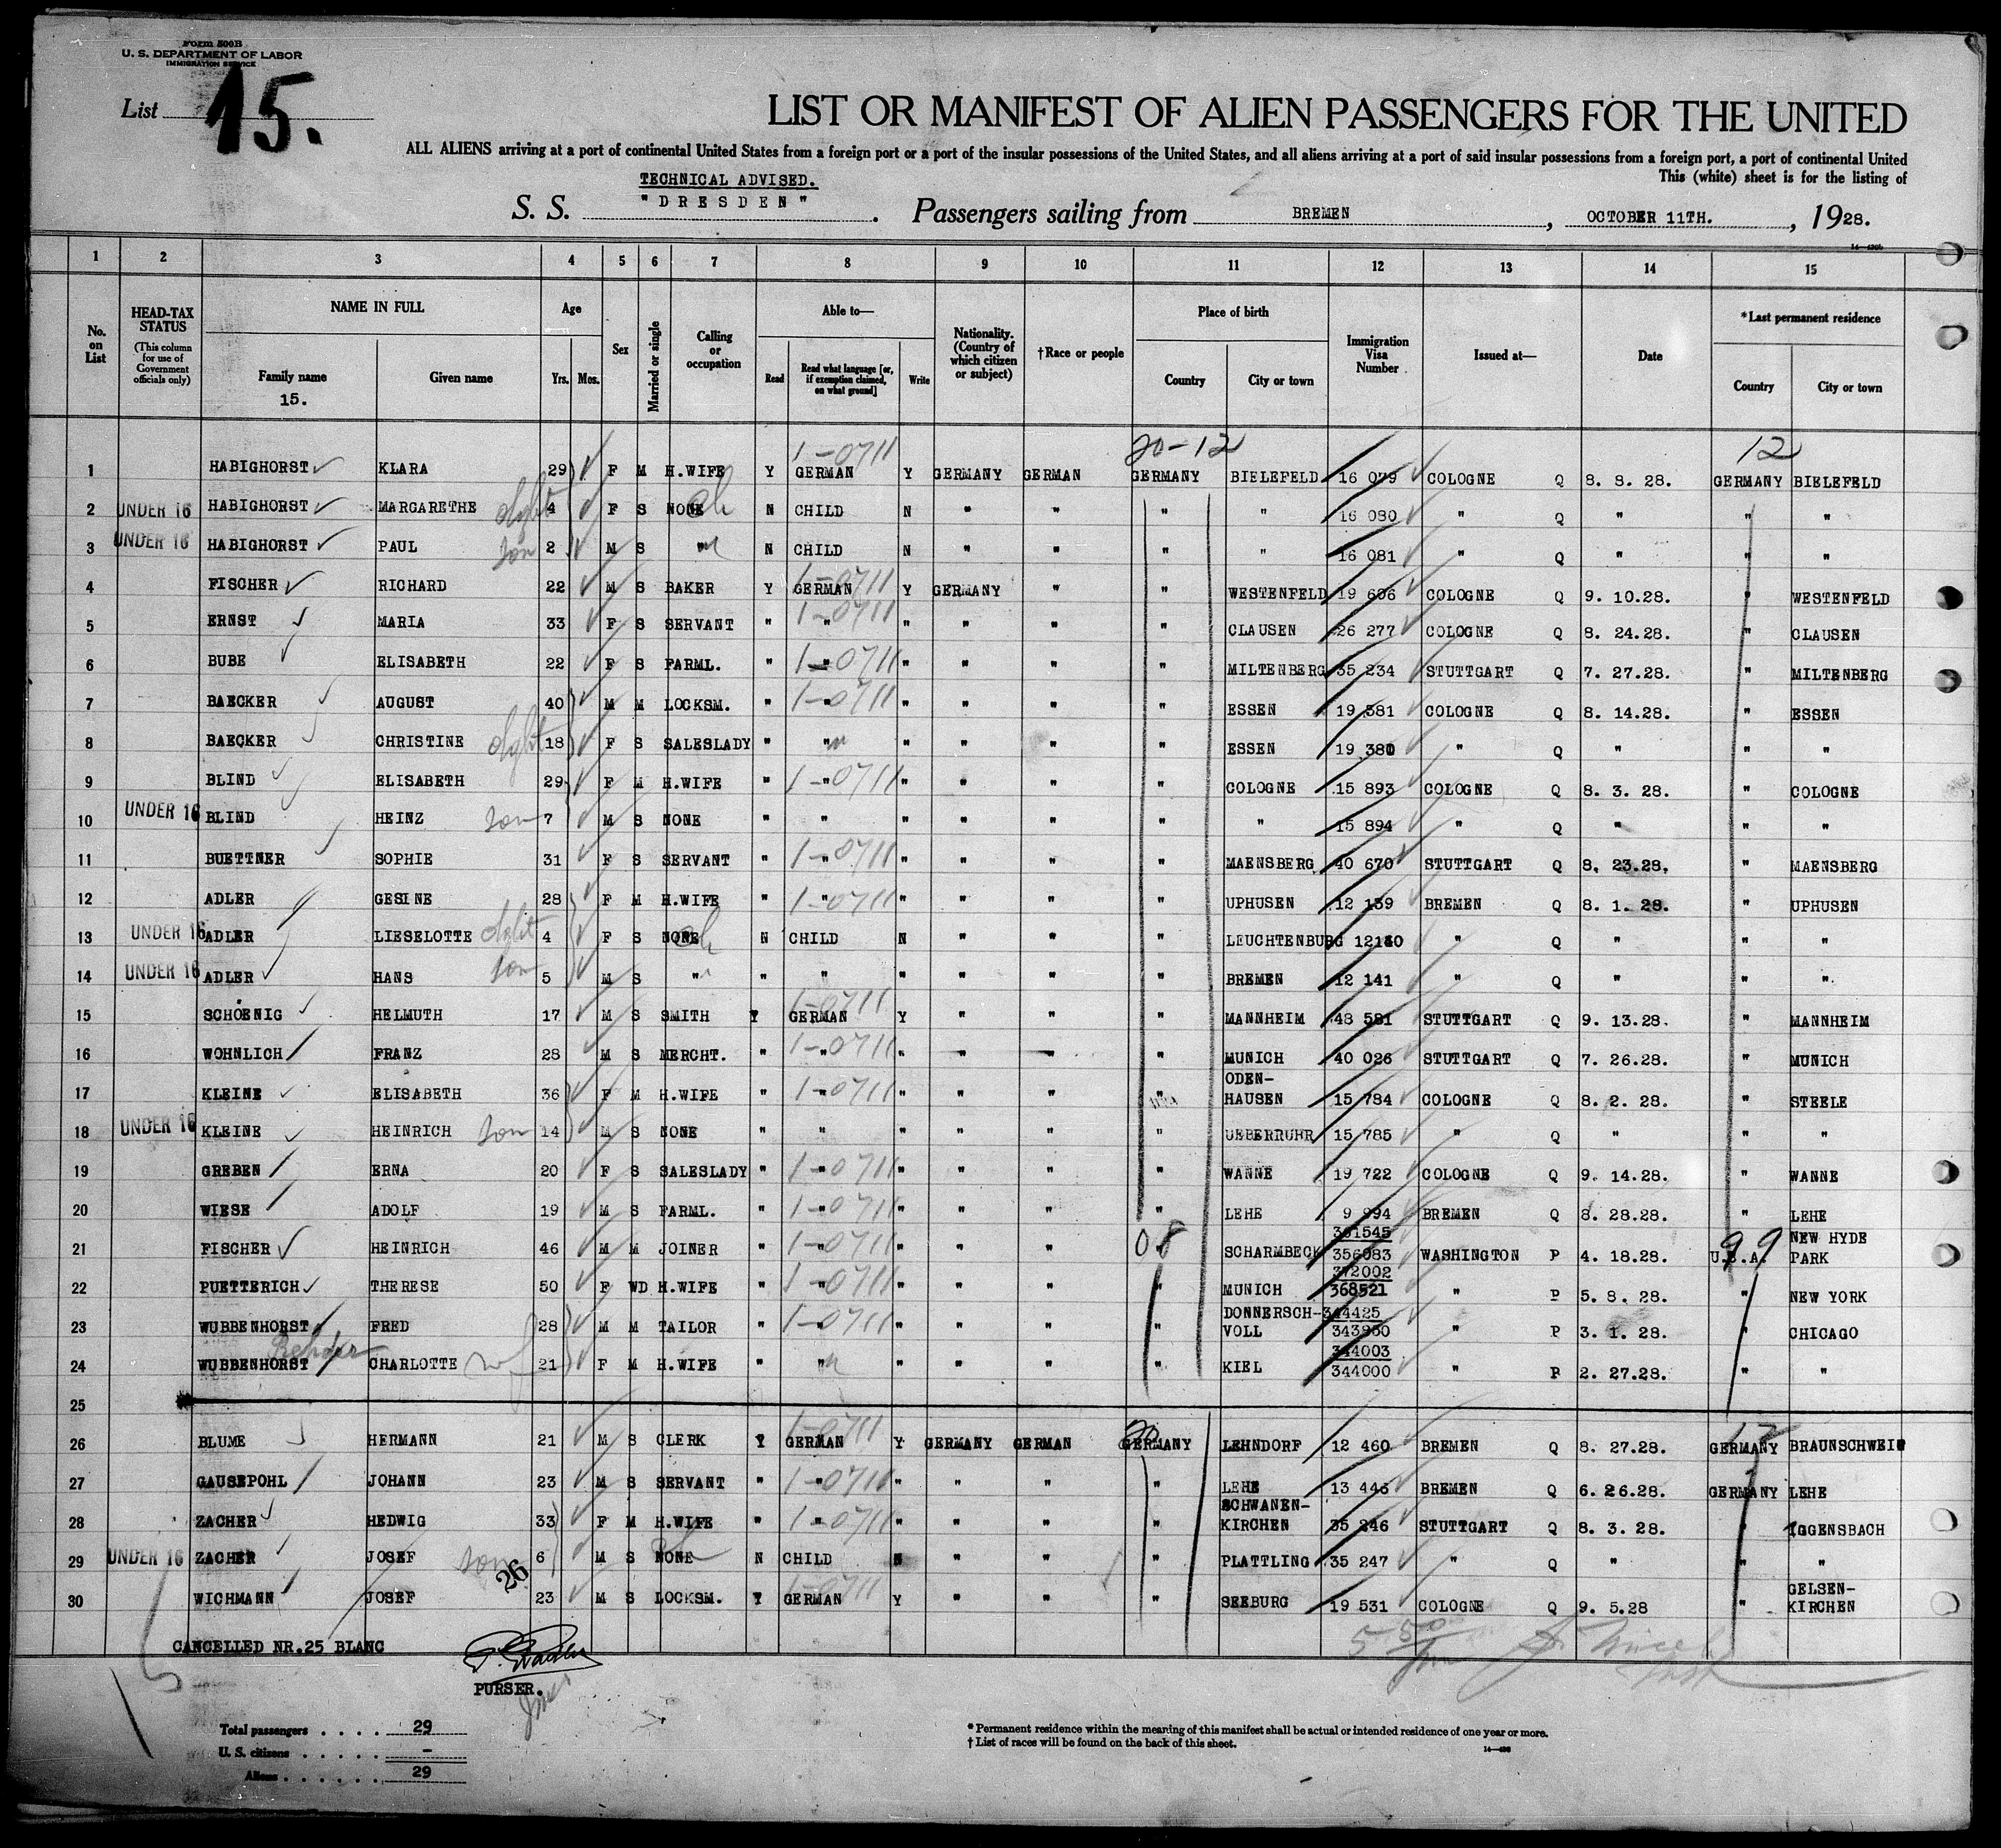 Form 500B
U. S. DEPARTMENT OF LABOR
IMMIGRATION SERVICE
List 15.
LIST OR MANIFEST OF ALIEN PASSENGERS FOR THE UNITED
ALL ALIENS arriving at a port of continental United States from a foreign port or a port of the insular possessions of the United States, and all aliens arriving at a port of said insular possessions from a foreign port, a port of continental United
This (white) sheet is for the listing of
TECHNICAL ADVISED.
S. S. "DRESDEN" . Passengers sailing from BREMEN , OCTOBER 11TH. , 1928.
1 2 3 4 5 6 7 8 9 10 11 12 13 14 15
No. on List HEAD-TAX STATUS (This column for use of Government officials only) NAME IN FULL Family name Given name Age Yrs. Mos. Sex Married or single Calling or occupation Able to— Read Read what language [or, if exemption claimed, on what ground] Write Nationality. (Country of which citizen or subject) †Race or people Place of birth Country City or town Immigration Visa Number Issued at— Date *Last permanent residence Country City or town
15.
1-0711 20-12 12
1 HABIGHORST KLARA 29 F M H.WIFE Y GERMAN Y GERMANY GERMAN GERMANY BIELEFELD 16 079 COLOGNE Q 8. 8. 28. GERMANY BIELEFELD
2 UNDER 16 HABIGHORST MARGARETHE dght 4 F S NONE ch N CHILD N " " " " 16 080 " Q " " "
3 UNDER 16 HABIGHORST PAUL son 2 M S " N CHILD N " " " " 16 081 " Q " " "
4 FISCHER RICHARD 22 M S BAKER Y GERMAN 1-0711 Y GERMANY " " WESTENFELD 19 606 COLOGNE Q 9. 10.28. " WESTENFELD
5 ERNST MARIA 33 F S SERVANT " " 1-0711 " " " " CLAUSEN 26 277 COLOGNE Q 8. 24.28. " CLAUSEN
6 BUBE ELISABETH 22 F S FARML. " " 1-0711 " " " " MILTENBERG 35 234 STUTTGART Q 7. 27.28. " MILTENBERG
7 BAECKER AUGUST 40 M M LOCKSM. " " 1-0711 " " " " ESSEN 19 381 COLOGNE Q 8. 14.28. " ESSEN
8 BAECKER CHRISTINE dght 18 F S SALESLADY " " " " " " ESSEN 19 380 " Q " " "
9 BLIND ELISABETH 29 F M H.WIFE " " 1-0711 " " " " COLOGNE 15 893 COLOGNE Q 8. 3. 28. " COLOGNE
10 UNDER 16 BLIND HEINZ son 7 M S NONE " " " " " " " 15 894 " Q " " "
11 BUETTNER SOPHIE 31 F S SERVANT " " 1-0711 " " " " MAENSBERG 40 670 STUTTGART Q 8. 23.28. " MAENSBERG
12 ADLER GESINE 28 F M H.WIFE " " 1-0711 " " " " UPHUSEN 12 139 BREMEN Q 8. 1. 28. " UPHUSEN
13 UNDER 16 ADLER LIESELOTTE dght 4 F S NONE ch N CHILD N " " " LEUCHTENBURG 12140 " Q " " "
14 UNDER 16 ADLER HANS son 5 M S " " " " " " " BREMEN 12 141 " Q " " "
15 SCHOENIG HELMUTH 17 M S SMITH Y GERMAN 1-0711 Y " " " MANNHEIM 48 581 STUTTGART Q 9. 13.28. " MANNHEIM
16 WOHNLICH FRANZ 28 M S MERCHT. " " 1-0711 " " " " MUNICH 40 026 STUTTGART Q 7. 26.28. " MUNICH
17 KLEINE ELISABETH 36 F M H.WIFE " " 1-0711 " " " " ODEN-HAUSEN 15 784 COLOGNE Q 8. 2. 28. " STEELE
18 UNDER 16 KLEINE HEINRICH son 14 M S NONE " " " " " " UEBERRUHR 15 785 " Q " " "
19 GREBEN ERNA 20 F S SALESLADY " " 1-0711 " " " " WANNE 19 722 COLOGNE Q 9. 14.28. " WANNE
20 WIESE ADOLF 19 M S FARML. " " 1-0711 " " " " LEHE 9 994 BREMEN Q 8. 28.28. " LEHE
21 FISCHER HEINRICH 46 M M JOINER " " 1-0711 " " " 08 SCHARMBECK 361545 356083 WASHINGTON P 4. 18.28. U.S.A. 99 NEW HYDE PARK
22 PUETTERICH THERESE 50 F WD H.WIFE " " 1-0711 " " " " MUNICH 372002 368521 " P 5. 8. 28. " NEW YORK
23 WUBBENHORST FRED 28 M M TAILOR " " 1-0711 " " " " DONNERSCH-VOLL 344425 343930 " P 3. 1. 28. " CHICAGO
24 WUBBENHORST CHARLOTTE wf 21 F M H.WIFE " " " " " " KIEL 344003 344000 " P 2. 27.28. " "
25
26 BLUME HERMANN 21 M S CLERK Y GERMAN 1-0711 Y GERMANY GERMAN GERMANY 20 LEHNDORF 12 460 BREMEN Q 8. 27.28. GERMANY 12 BRAUNSCHWEIG
27 GAUSEPOHL JOHANN 23 M S SERVANT " " 1-0711 " " " " LEHE 13 446 BREMEN Q 6. 26.28. GERMANY LEHE
28 ZACHER HEDWIG 33 F M H.WIFE " " 1-0711 " " " " SCHWANEN-KIRCHEN 35 246 STUTTGART Q 8. 3. 28. " IGGENSBACH
29 UNDER 16 ZACHER JOSEF son 6 M S NONE ch N CHILD N " " " PLATTLING 35 247 " Q " " "
30 WICHMANN JOSEF 26 23 M S LOCKSM. Y GERMAN 1-0711 Y " " " SEEBURG 19 531 COLOGNE Q 9. 5.28 " GELSEN-KIRCHEN
CANCELLED NR.25 BLANC
PURSER.
Total passengers . . . . 29
U. S. citizens . . . . . –
Aliens . . . . . . 29
* Permanent residence within the meaning of this manifest shall be actual or intended residence of one year or more.
† List of races will be found on the back of this sheet.